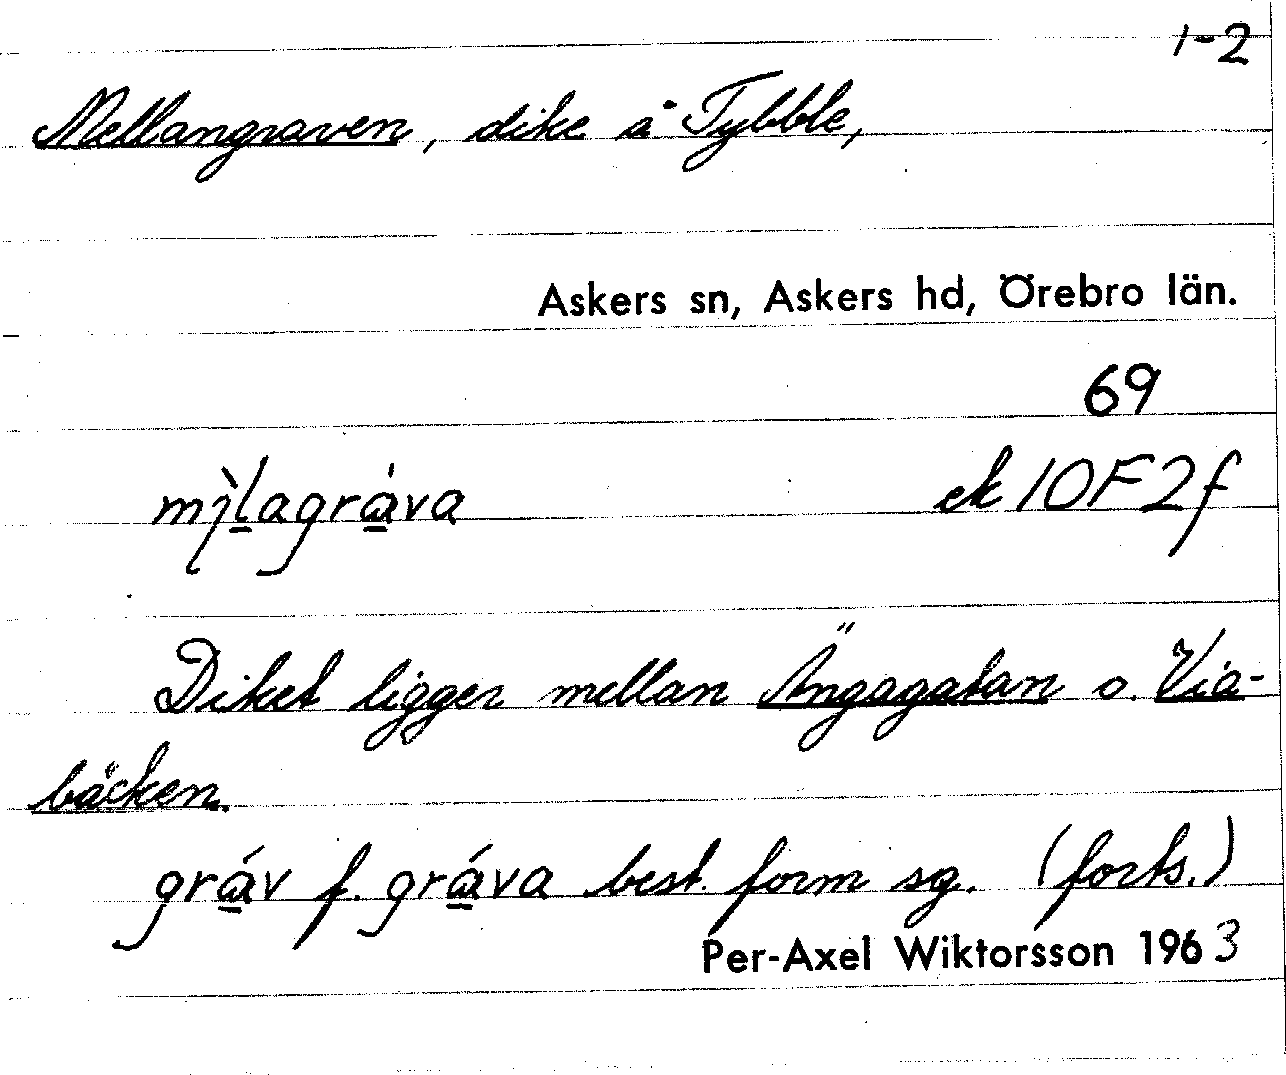 1-2
Mellangraven, dike å Tybble,
Askers sn, Askers hd, Örebro län.
69
ek 10F2f
Diket ligger mellan Ängagatan o. Via-
bäcken.
gráv f. gráva best. form sg. (forts.)
Per-Axel Wiktorsson 1963